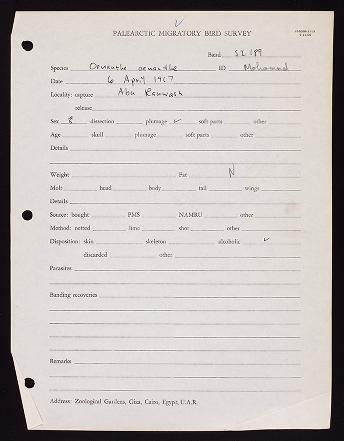 PALEARCTIC MIGRATORY BIRD SURVEY
Band SI 189
Species Oenanthe oenanthe ID Mohamed
Date 6 April 1967
Locality: capture Abu Rawash
release
Sex dissection plumage ✓ soft parts other
Age skull plumage soft parts other
Details
Weight Fat N
Molt: head body tail wings
Details
Source: bought PMS NAMRU other
Method: netted lime shot other
Disposition: skin skeleton alcoholic ✓
discarded other
Parasites
Banding recoveries
Remarks
Address: Zoological Gardens, Giza, Cairo, Egypt, U.A.R.